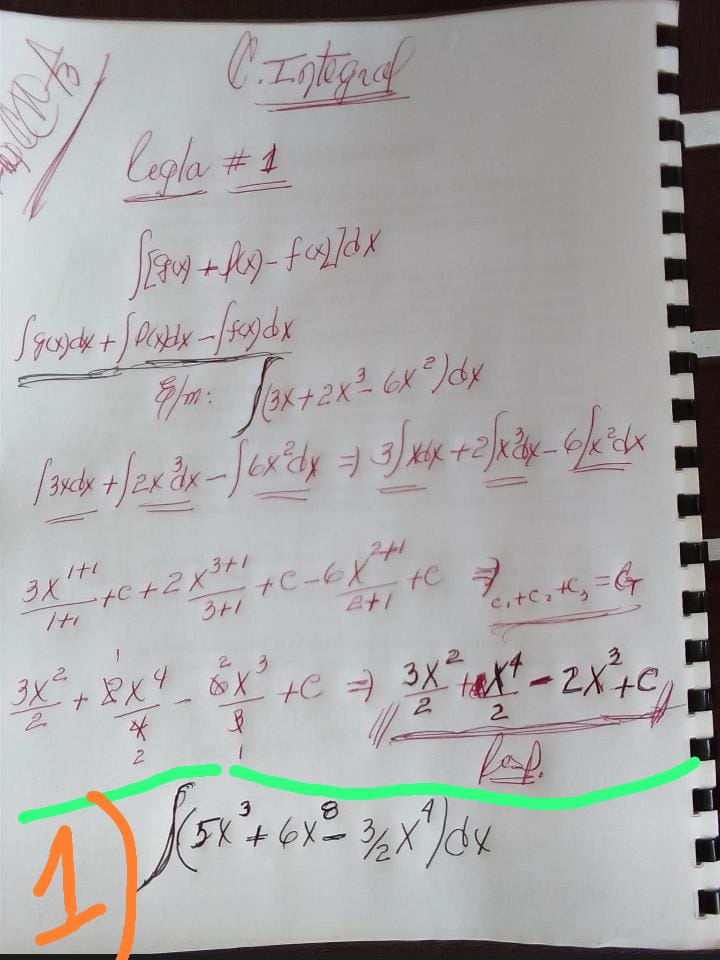 C. Integral
Regla # 1
∫[g(x) + p(x) - f(x)]dx
∫g(x)dx + ∫p(x)dx - ∫f(x)dx
∫(3x + 2x³ - 6x²)dx
∫3xdx + ∫2x³dx - ∫6x²dx ⇒ 3∫xdx + 2∫x³dx - 6∫x²dx
3x¹⁺¹/1+1 + c + 2x³⁺¹/3+1 + c - 6x²⁺¹/2+1 + c ⇒ c₁ + c₂ + c₃ =
3x²/2 + 2x⁴/4 - 6x³/3 + c ⇒ 3x²/2 + x⁴/2 - 2x³ + c
Resp.
1) ∫(5x³ + 6x⁸ - 3/2x⁴)dx